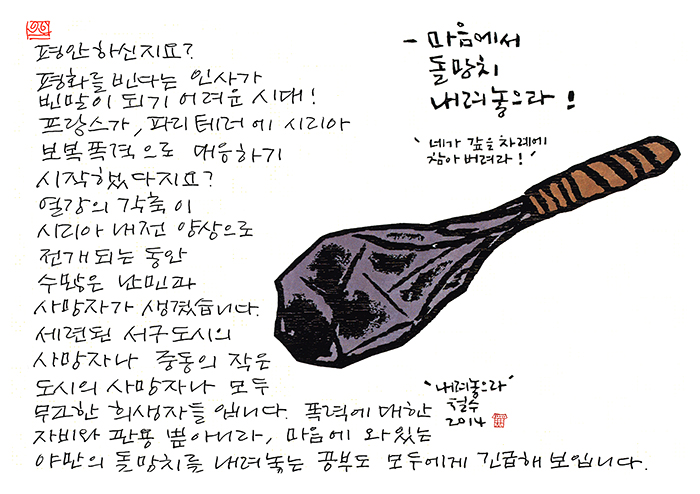 평안하신지요?
평화를 빈다는 인사가
빈말이 되기 어려운 시대!
프랑스가, 파리테러에 시리아
보복폭격으로 대응하기
시작했다지요?
열강의 각축이
시리아 내전 양상으로
전개되는 동안
수많은 난민과
사망자가 생겼습니다.
세련된 서구도시의
사망자나 중동의 작은
도시의 사망자나 모두
무고한 희생자들입니다. 폭력에 대한
자비와 관용 뿐아니라, 마음에 와있는
야만의 돌망치를 내려놓는 공부도 모두에게 긴급해 보입니다.
- 마음에서
돌망치
내려놓으라!
'네가 갚을 차례에
참아 버려라!'
"내려놓으라"
철수
2014